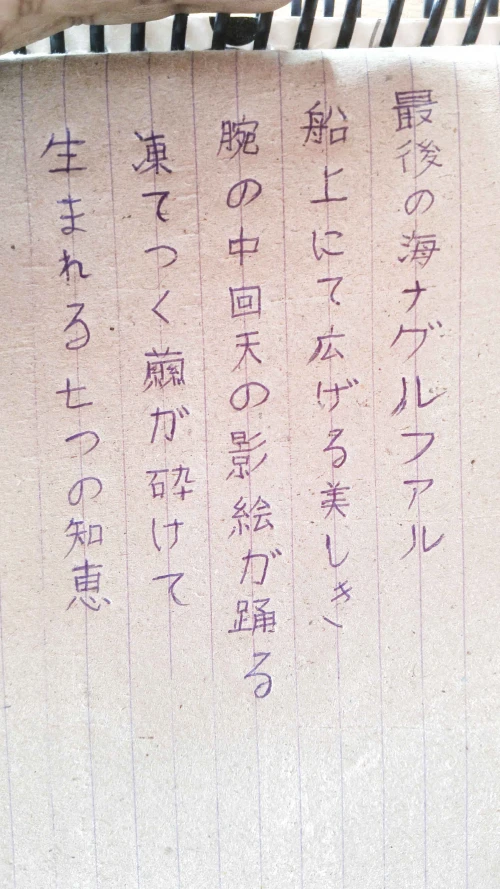 最後の海ナグルファル
船上にて広げる美しき
腕の中回天の影絵が踊る
凍てつく繭が砕けて
生まれる七つの知恵